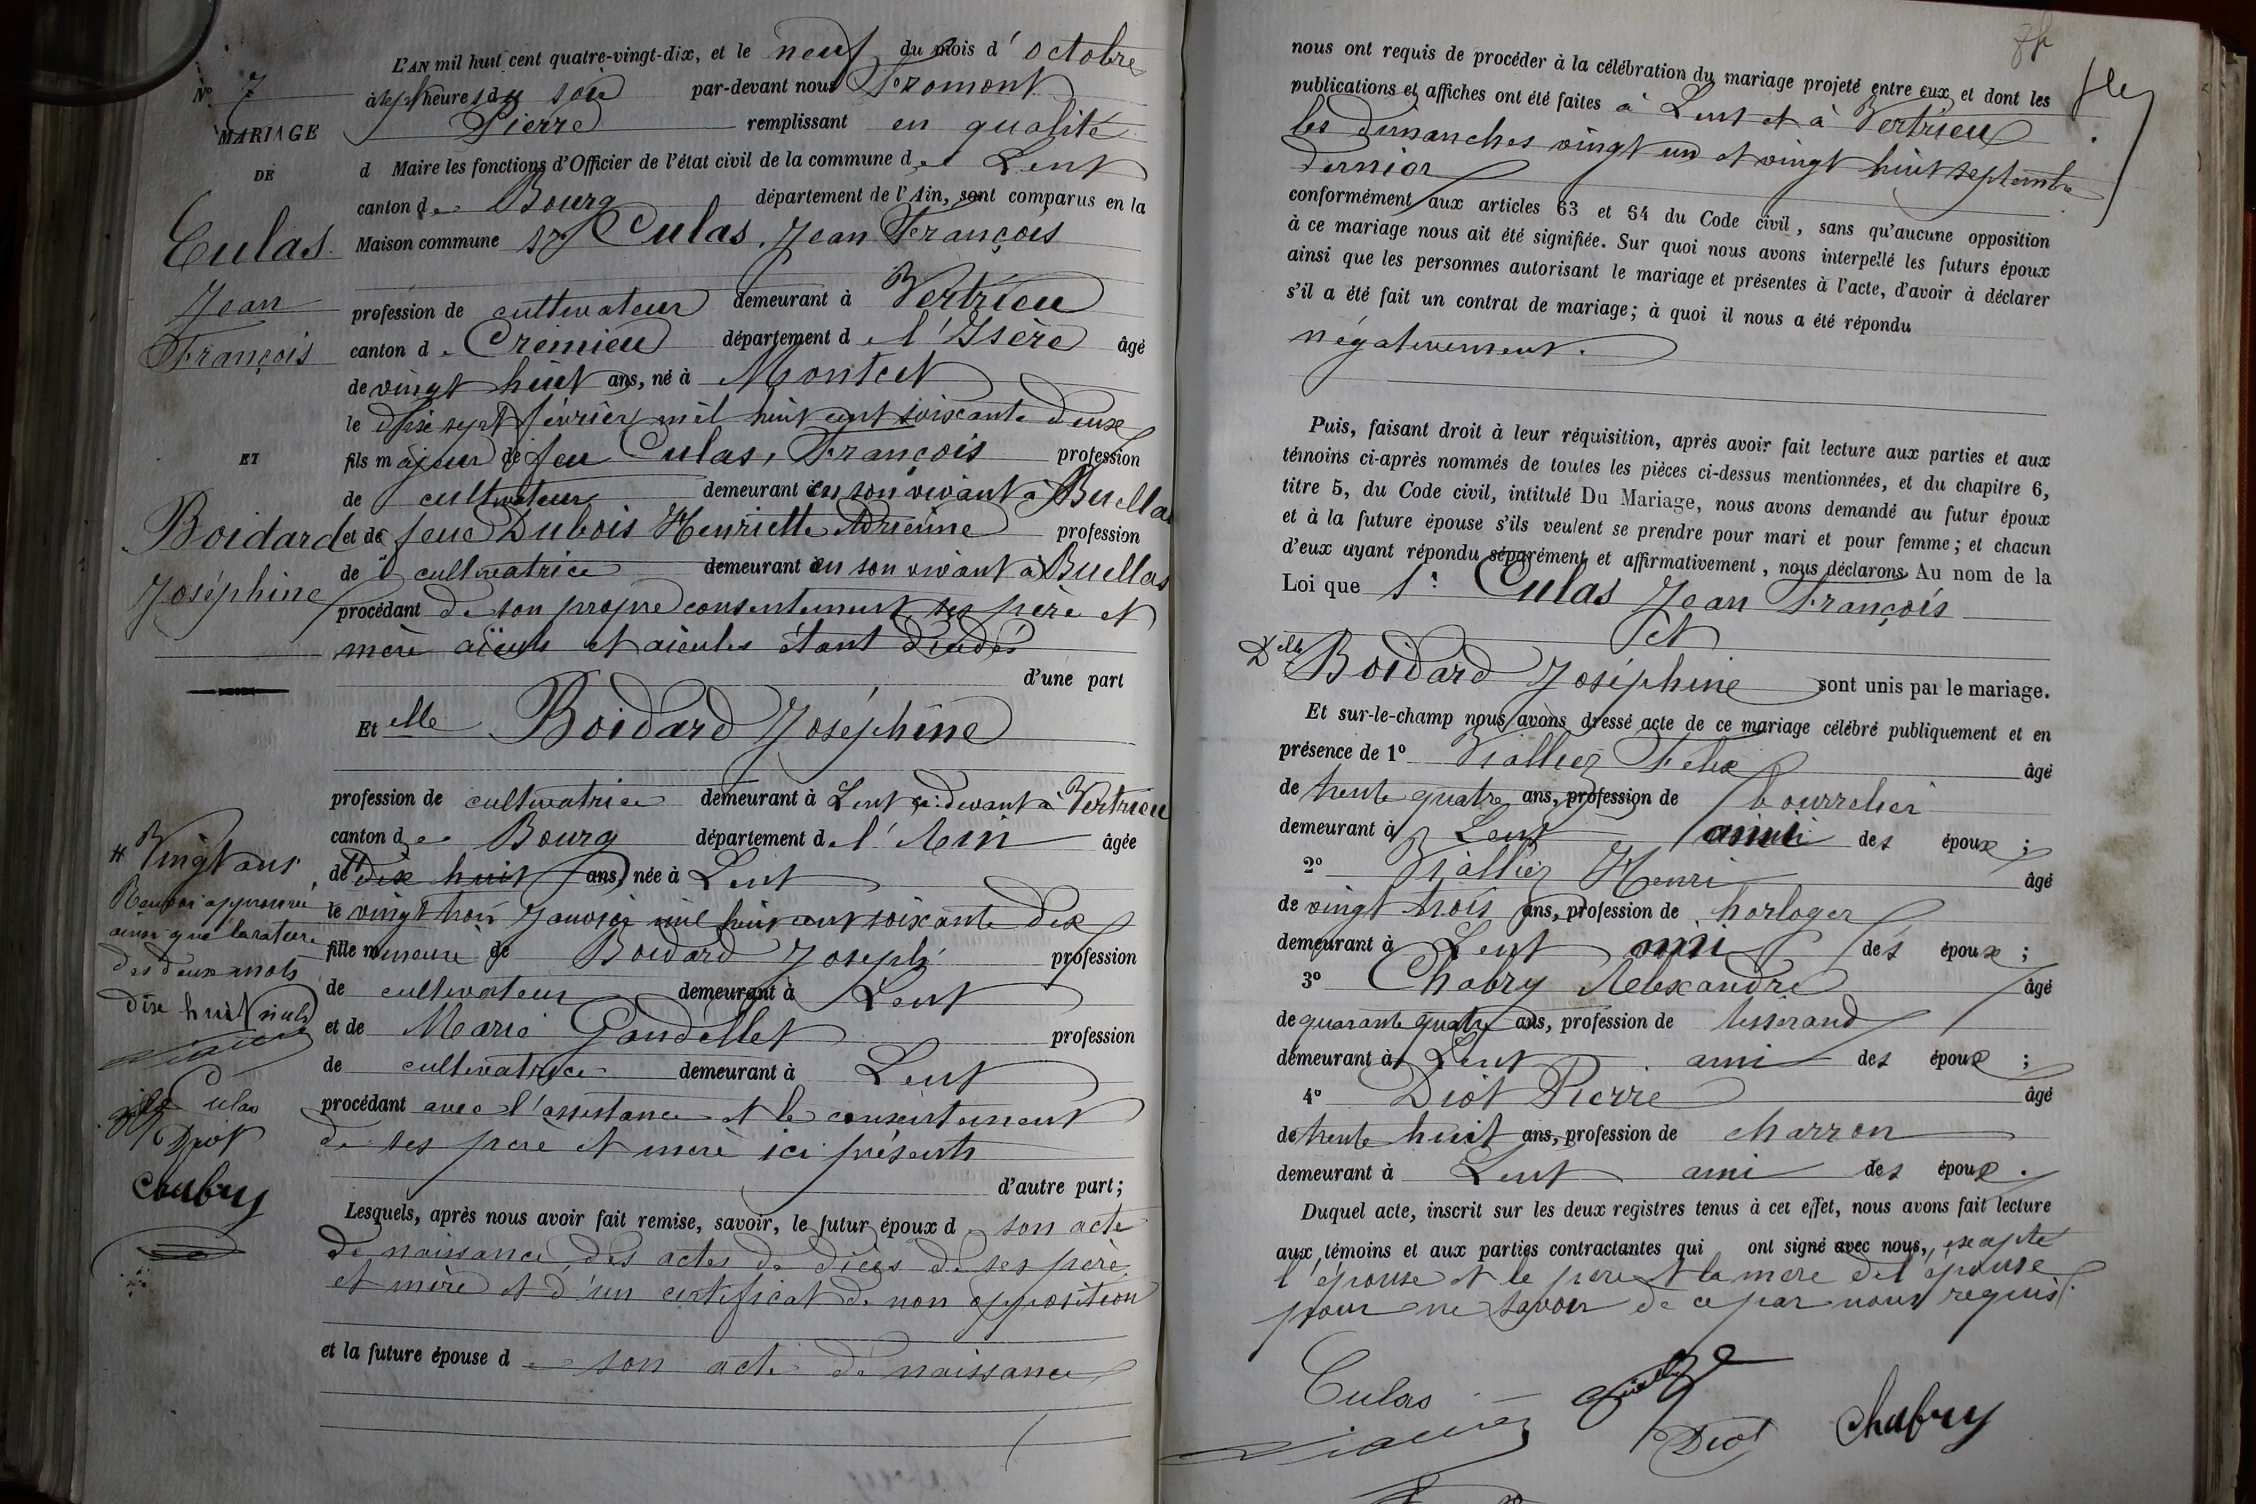 N° 7
MARIAGE
DE
Culas
Jean
François
ET
Boidard
Joséphine
L'AN mil huit cent quatre-vingt-dix, et le neuf du mois d'octobre
à sept heures du soir par-devant nous Fromont
Pierre remplissant en qualité
d Maire les fonctions d'Officier de l'état civil de la commune de Lent
canton de Bourg département de l'Ain, sont comparus en la
Maison commune sr Culas, Jean François
profession de cultivateur demeurant à Vertrieu
canton de Crémieu département de l'Isère âgé
de vingt huit ans, né à Montcet
le dix sept février mil huit cent soixante deux
fils majeur de feu Culas, François profession
de cultivateur demeurant en son vivant à Buellas
et de feue Dubois Henriette Adrienne profession
de cultivatrice demeurant en son vivant à Buellas
procédant de son propre consentement, ses père et
mère aïeuls et aïeules étant décédés
d'une part
Et elle Boidard Joséphine
profession de cultivatrice demeurant à Lent ci-devant à Vertrieu
canton de Bourg département de l'Ain âgée
de # dix huit ans, née à Lent
le vingt trois Janvier mil huit cent soixante dix
fille mineure de Boidard Joseph profession
de cultivateur demeurant à Lent
et de Marie Gaudellet profession
de cultivatrice demeurant à Lent
procédant avec l'assistance et le consentement
de ses père et mère ici présents
d'autre part;
Lesquels, après nous avoir fait remise, savoir, le futur époux de son acte
de naissance, des actes de décès de ses père
et mère et d'un certificat de non opposition
et la future épouse de son acte de naissance
# Vingt ans
Renvoi approuvé
ainsi que la rature
des deux mots
dix huit nuls
Culas
Diot
Chabry
nous ont requis de procéder à la célébration du mariage projeté entre eux, et dont les
publications et affiches ont été faites à Lent et à Vertrieu
les dimanches vingt un et vingt huit septembre
dernier
conformément aux articles 63 et 64 du Code civil, sans qu'aucune opposition
à ce mariage nous ait été signifiée. Sur quoi nous avons interpellé les futurs époux
ainsi que les personnes autorisant le mariage et présentes à l'acte, d'avoir à déclarer
s'il a été fait un contrat de mariage; à quoi il nous a été répondu
négativement.
Puis, faisant droit à leur réquisition, après avoir fait lecture aux parties et aux
témoins ci-après nommés de toutes les pièces ci-dessus mentionnées, et du chapitre 6,
titre 5, du Code civil, intitulé Du Mariage, nous avons demandé au futur époux
et à la future épouse s'ils veulent se prendre pour mari et pour femme; et chacun
d'eux ayant répondu séparément et affirmativement, nous déclarons Au nom de la
Loi que sr Culas Jean François
et
Delle Boidard Joséphine sont unis par le mariage.
Et sur-le-champ nous avons dressé acte de ce mariage célébré publiquement et en
présence de 1° Viallier Félix âgé
de trente quatre ans, profession de bourrelier
demeurant à Lent ami des époux;
2° Viallier Henri âgé
de vingt trois ans, profession de horloger
demeurant à Lent ami des époux;
3° Chabry Alexandre âgé
de quarante quatre ans, profession de tisserand
demeurant à Lent ami des époux;
4° Diot Pierre âgé
de trente huit ans, profession de charron
demeurant à Lent ami des époux.
Duquel acte, inscrit sur les deux registres tenus à cet effet, nous avons fait lecture
aux témoins et aux parties contractantes qui ont signé avec nous, excepté
l'épouse et le père et la mère de l'épouse
pour ne savoir de ce par nous requis.
Culas
Diot
Chabry